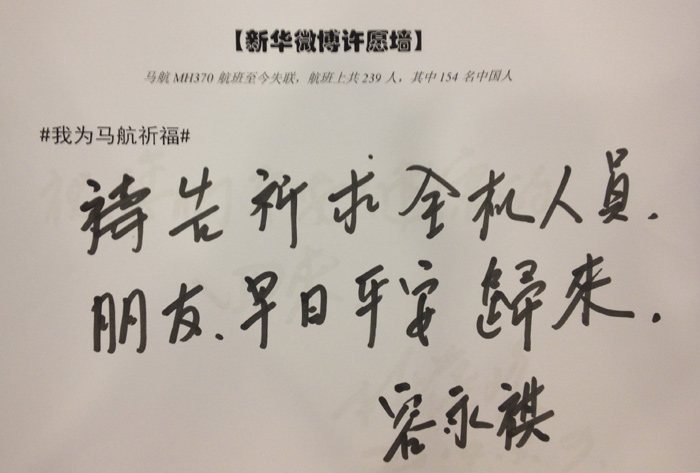 【新华微博许愿墙】
马航 MH370 航班至今失联，航班上共 239 人，其中 154 名中国人
#我为马航祈福#
祷告祈求全机人员.
朋友、早日平安歸來.
容永祺